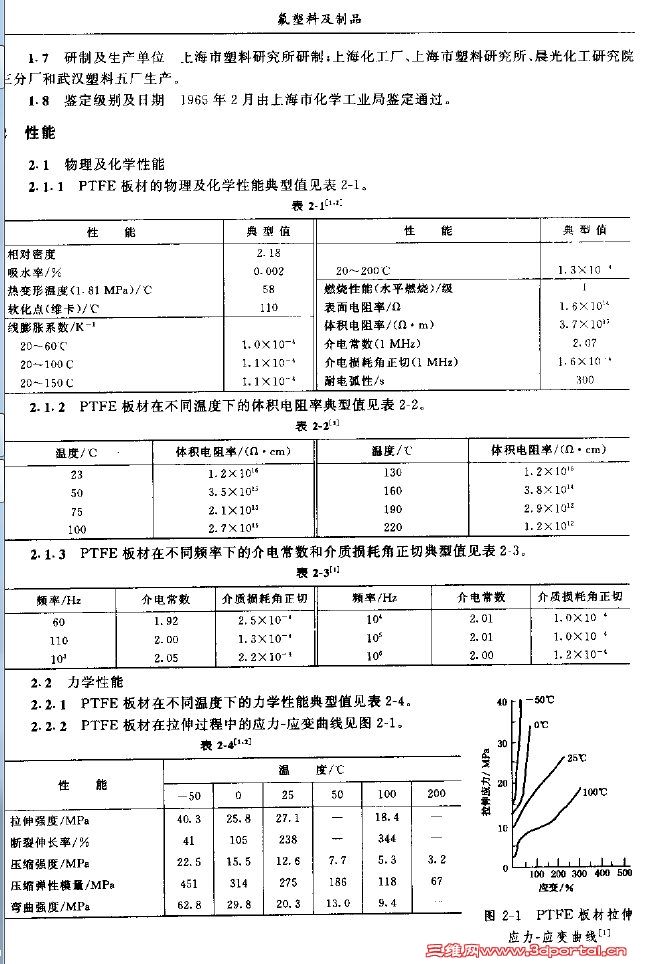 氟塑料及制品
1.7 研制及生产单位 上海市塑料研究所研制;上海化工厂、上海市塑料研究所、晨光化工研究院
三分厂和武汉塑料五厂生产。
1.8 鉴定级别及日期 1965年2月由上海市化学工业局鉴定通过。
性能
2.1 物理及化学性能
2.1.1 PTFE板材的物理及化学性能典型值见表2-1。
表2-1[1,2]
性 能 典型值 性 能 典型值
相对密度 2.18
吸水率/% 0.002 20～200℃ 1.3×10
热变形温度(1.81 MPa)/℃ 58 燃烧性能(水平燃烧)/级 I
软化点(维卡)/℃ 110 表面电阻率/Ω 1.6×10
线膨胀系数/K⁻¹ 体积电阻率/(Ω·m) 3.7×10
20～60℃ 1.0×10⁻⁴ 介电常数(1 MHz) 2.07
20～100℃ 1.1×10⁻⁴ 介电损耗角正切(1 MHz) 1.6×10
20～150℃ 1.1×10⁻⁴ 耐电弧性/s 300
2.1.2 PTFE板材在不同温度下的体积电阻率典型值见表2-2。
表2-2[1]
温度/℃ 体积电阻率/(Ω·cm) 温度/℃ 体积电阻率/(Ω·cm)
23 1.2×10¹⁶ 130 1.2×10
50 3.5×10 160 3.8×10¹⁴
75 2.1×10 190 2.9×10¹²
100 2.7×10 220 1.2×10¹²
2.1.3 PTFE板材在不同频率下的介电常数和介质损耗角正切典型值见表2-3。
表2-3[1]
频率/Hz 介电常数 介质损耗角正切 频率/Hz 介电常数 介质损耗角正切
60 1.92 2.5×10 10⁴ 2.01 1.0×10
110 2.00 1.3×10 10⁵ 2.01 1.0×10
10³ 2.05 2.2×10 10⁶ 2.00 1.2×10⁻⁴
2.2 力学性能
2.2.1 PTFE板材在不同温度下的力学性能典型值见表2-4。
2.2.2 PTFE板材在拉伸过程中的应力-应变曲线见图2-1。
表2-4[1,2]
性 能 温 度/℃
−50 0 25 50 100 200
拉伸强度/MPa 40.3 25.8 27.1 — 18.4 —
断裂伸长率/% 41 105 238 — 344 —
压缩强度/MPa 22.5 15.5 12.6 7.7 5.3 3.2
压缩弹性模量/MPa 451 314 275 186 118 67
弯曲强度/MPa 62.8 29.8 20.3 13.0 9.4 —
拉伸应力/MPa
40
30
20
10
0
-50℃
0℃
25℃
100℃
100 200 300 400 500
应变/%
图2-1 PTFE板材拉伸
应力-应变曲线[1]
三维网www.3dportal.cn